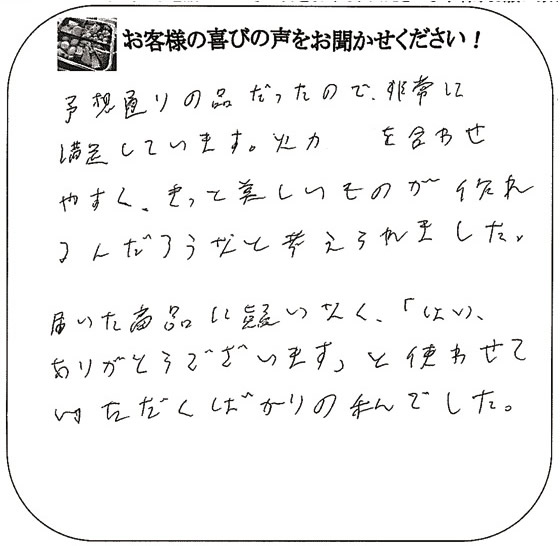 お客様の喜びの声をお聞かせください！
予想通りの品だったので、非常に
満足しています。火力 を合わせ
やすく、きっと美しいものが作れ
るんだろうなと考えられました。
届いた商品に疑いなく、「はい、
ありがとうございます」と使わせて
いただくばかりの
でした。